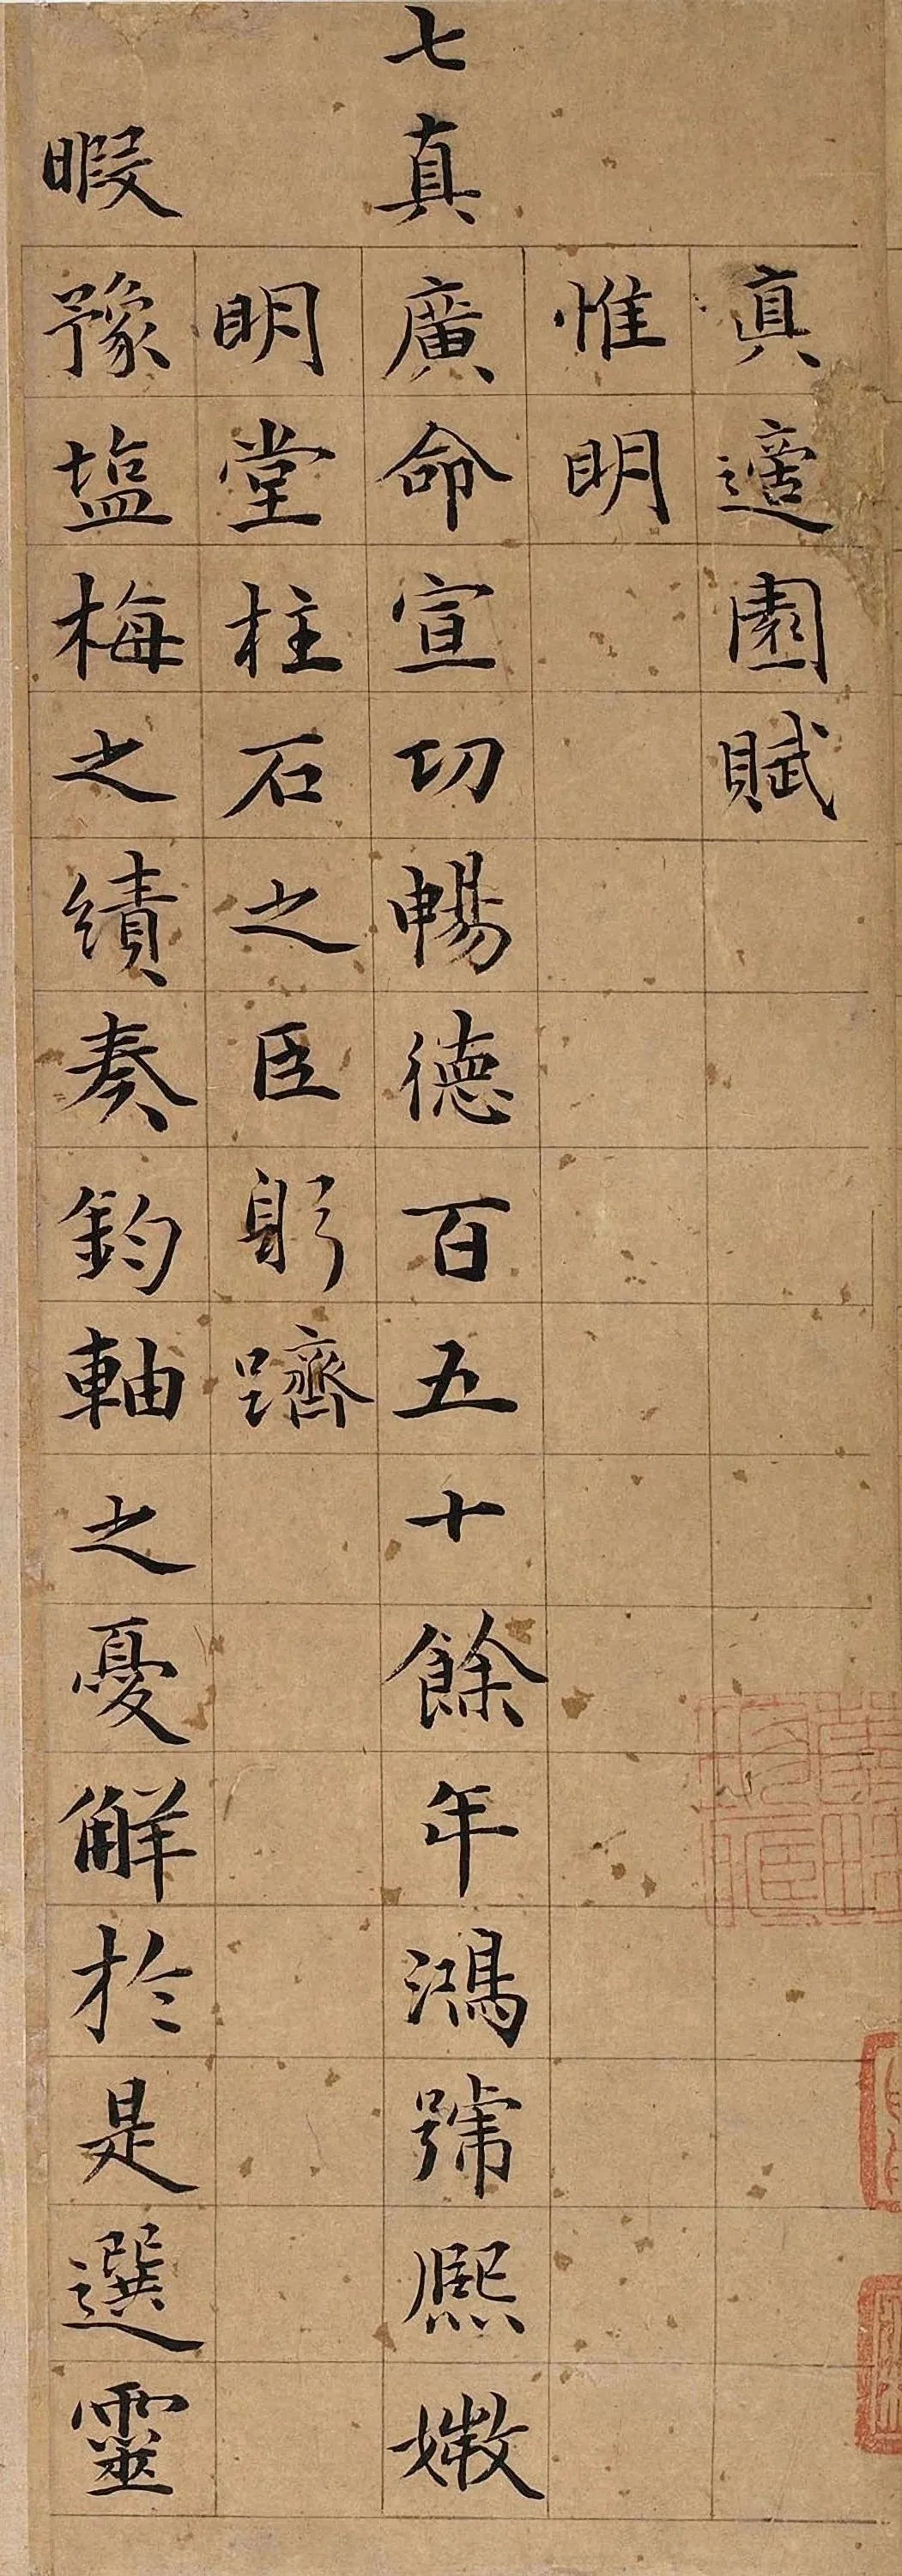 真適園賦
惟明
七真廣命宣功暢德百五十餘年鴻號熙媺
明堂柱石之臣躬躋
暇豫塩梅之績奏鈞軸之憂解於是選靈